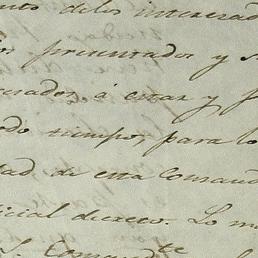 nto delos interesad
os presentados y s
eresados á estar y p
odo tiempo, para lo
tad de esta Comand
icial decreto. Lo m
S. Comandte